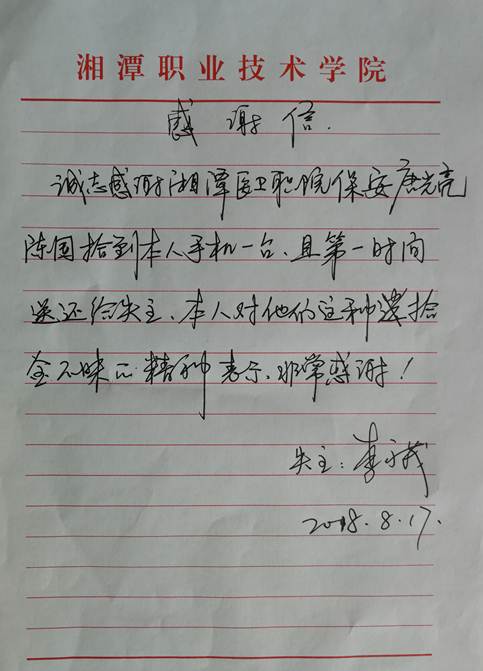 湘潭职业技术学院
感谢信.
诚志感谢湘潭医卫职院保安唐光亮
陈国拾到本人手机一台、且第一时间
送还给失主、本人对他们这种
拾
金不昧的精神表示、非常感谢！
失主：李
2018.8.17.